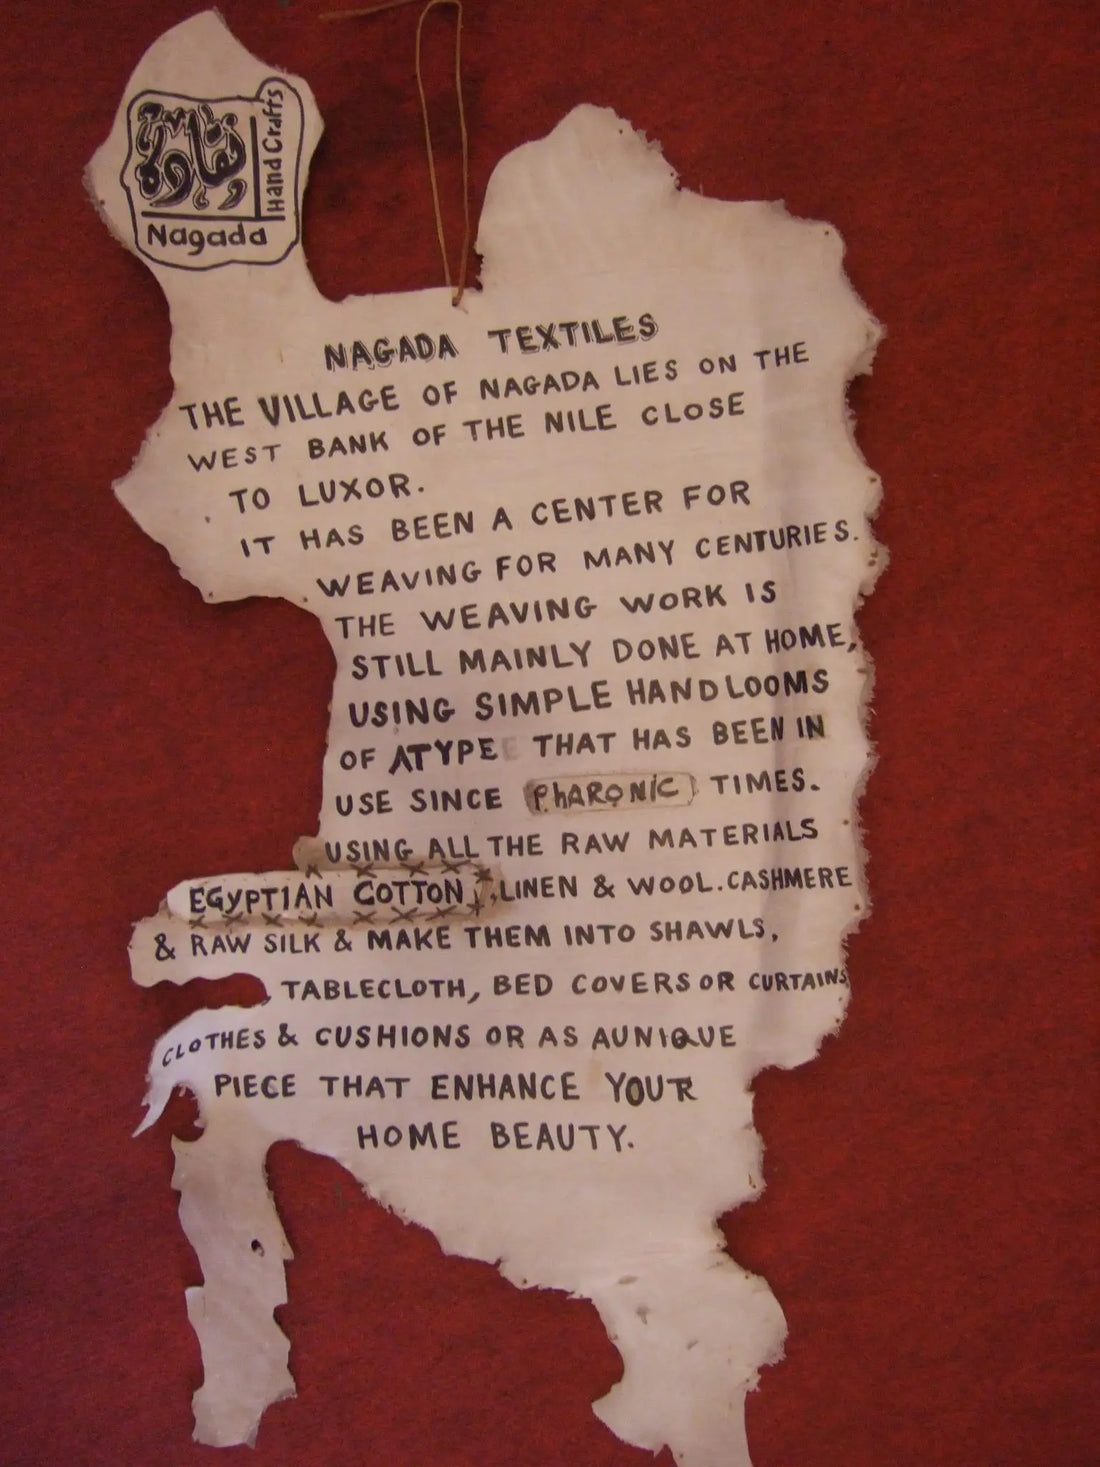 نقادة
Nagada
Hand Crafts
NAGADA TEXTILES
THE VILLAGE OF NAGADA LIES ON THE
WEST BANK OF THE NILE CLOSE
TO LUXOR.
IT HAS BEEN A CENTER FOR
WEAVING FOR MANY CENTURIES.
THE WEAVING WORK IS
STILL MAINLY DONE AT HOME,
USING SIMPLE HANDLOOMS
OF ATYPE THAT HAS BEEN IN
USE SINCE PhARONIC TIMES.
USING ALL THE RAW MATERIALS
EGYPTIAN COTTON, LINEN & WOOL.CASHMERE
& RAW SILK & MAKE THEM INTO SHAWLS,
TABLECLOTH, BED COVERS OR CURTAINS
CLOTHES & CUSHIONS OR AS AUNIQUE
PIECE THAT ENHANCE YOUR
HOME BEAUTY.